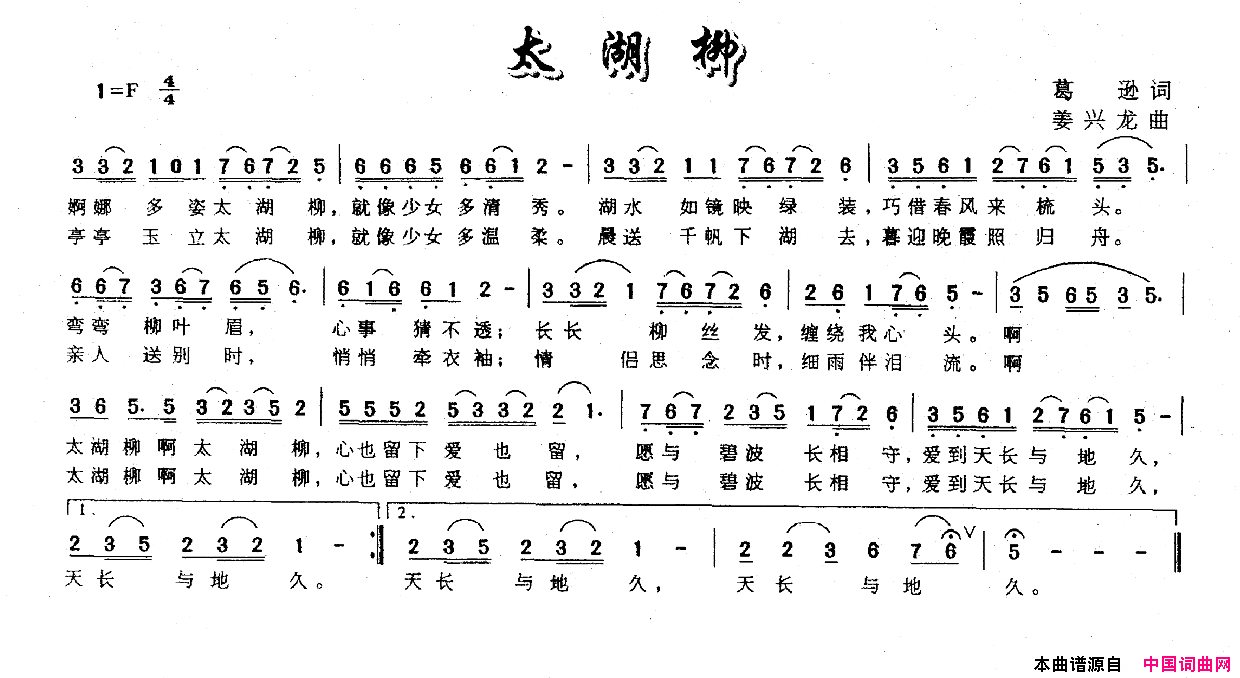 太湖柳
1=F 4/4
葛 逊 词
姜 兴 龙 曲
3 3 2 1 0 1 7 6 7 2 5 | 6 6 6 5 6 6 1 2 - | 3 3 2 1 1 7 6 7 2 6 | 3 5 6 1 2 7 6 1 5 3 5. |
婀娜 多 姿太 湖 柳，就像少女多清 秀。 湖水 如镜映 绿 装，巧借春风来 梳 头。
亭亭 玉 立太 湖 柳，就像少女多温 柔。晨送 千帆下 湖 去，暮迎晚霞照 归 舟。
6 6 7 3 6 7 6 5 6. | 6 1 6 6 1 2 - | 3 3 2 1 7 6 7 2 6 | 2 6 1 7 6 5 - | 3 5 6 5 3 5. |
弯弯 柳叶 眉， 心事 猜不透；长长 柳 丝 发，缠绕我心 头。啊
亲人 送别 时， 悄悄 牵衣袖；情 侣思 念 时，细雨伴泪 流。啊
3 6 5. 5 3 2 3 5 2 | 5 5 5 2 5 3 3 2 2 1. | 7 6 7 2 3 5 1 7 2 6 | 3 5 6 1 2 7 6 1 5 - |
太湖柳啊太 湖 柳，心也留下 爱 也 留， 愿与 碧波 长相 守，爱到天长与 地 久，
太湖柳啊太 湖 柳，心也留下 爱 也 留， 愿与 碧波 长相 守，爱到天长与 地 久，
1. 2.
2 3 5 2 3 2 1 - :| 2 3 5 2 3 2 1 - | 2 2 3 6 7 6 V | 5 - - - ||
天长 与地 久。 天长 与地 久， 天 长 与地 久。
本曲谱源自 中国词曲网